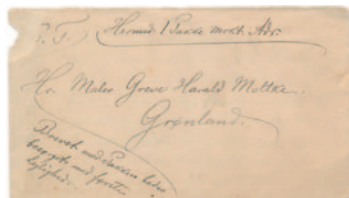 P. T.
Hermed 1 Pakke mrkt. Adr.
Hr. Maler Greve Harald Moltke.
Grønland.
Brevet med Pakken bedes
besørget med første
Lejlighed.